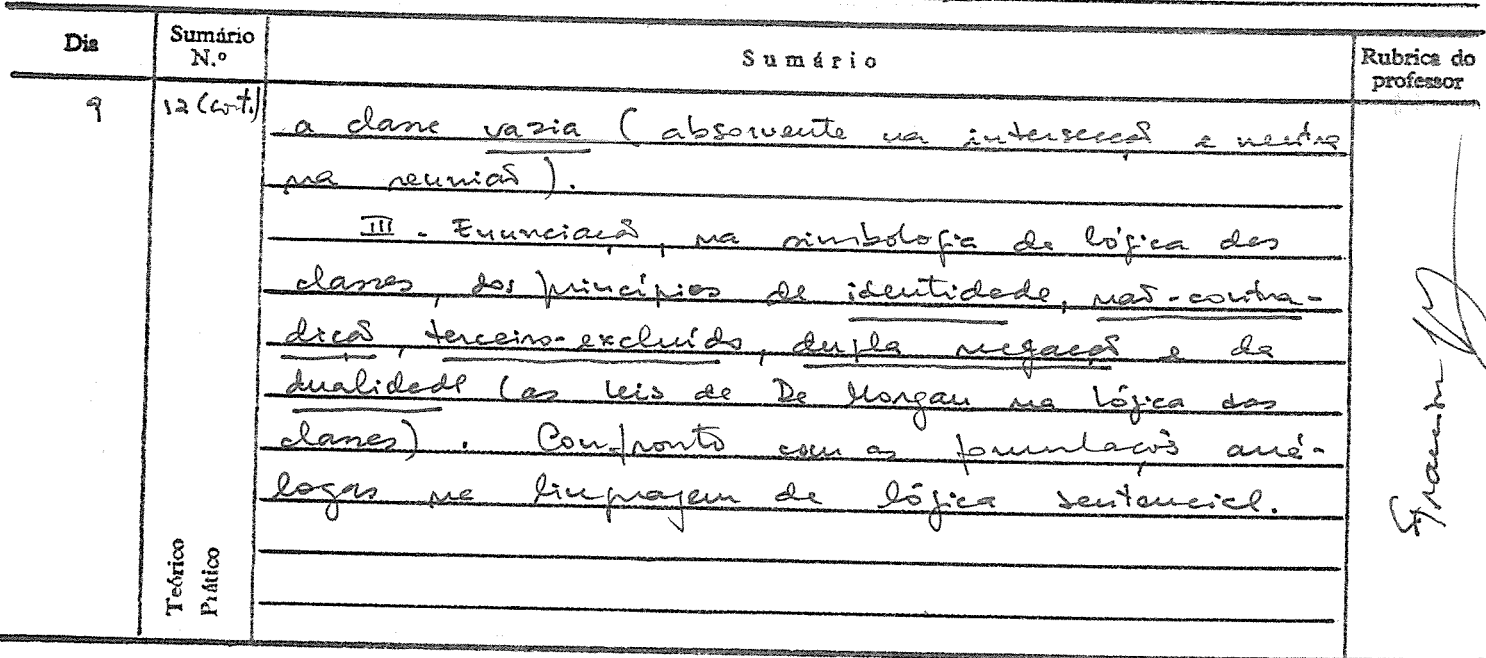 Dia
Sumário N.º
Sumário
Rubrica do professor
9
12 (cont.)
a classe vazia (absorvente na intersecção e neutra
na reunião).
III - Enunciação, na simbologia da lógica das
classes, dos princípios de identidade, não-contra-
dição, terceiro-excluído, dupla negação e da
dualidade (as leis de De Morgan na lógica das
classes). Confronto com as formulações aná-
logas na linguagem da lógica sentencial.
Teórico
Prático